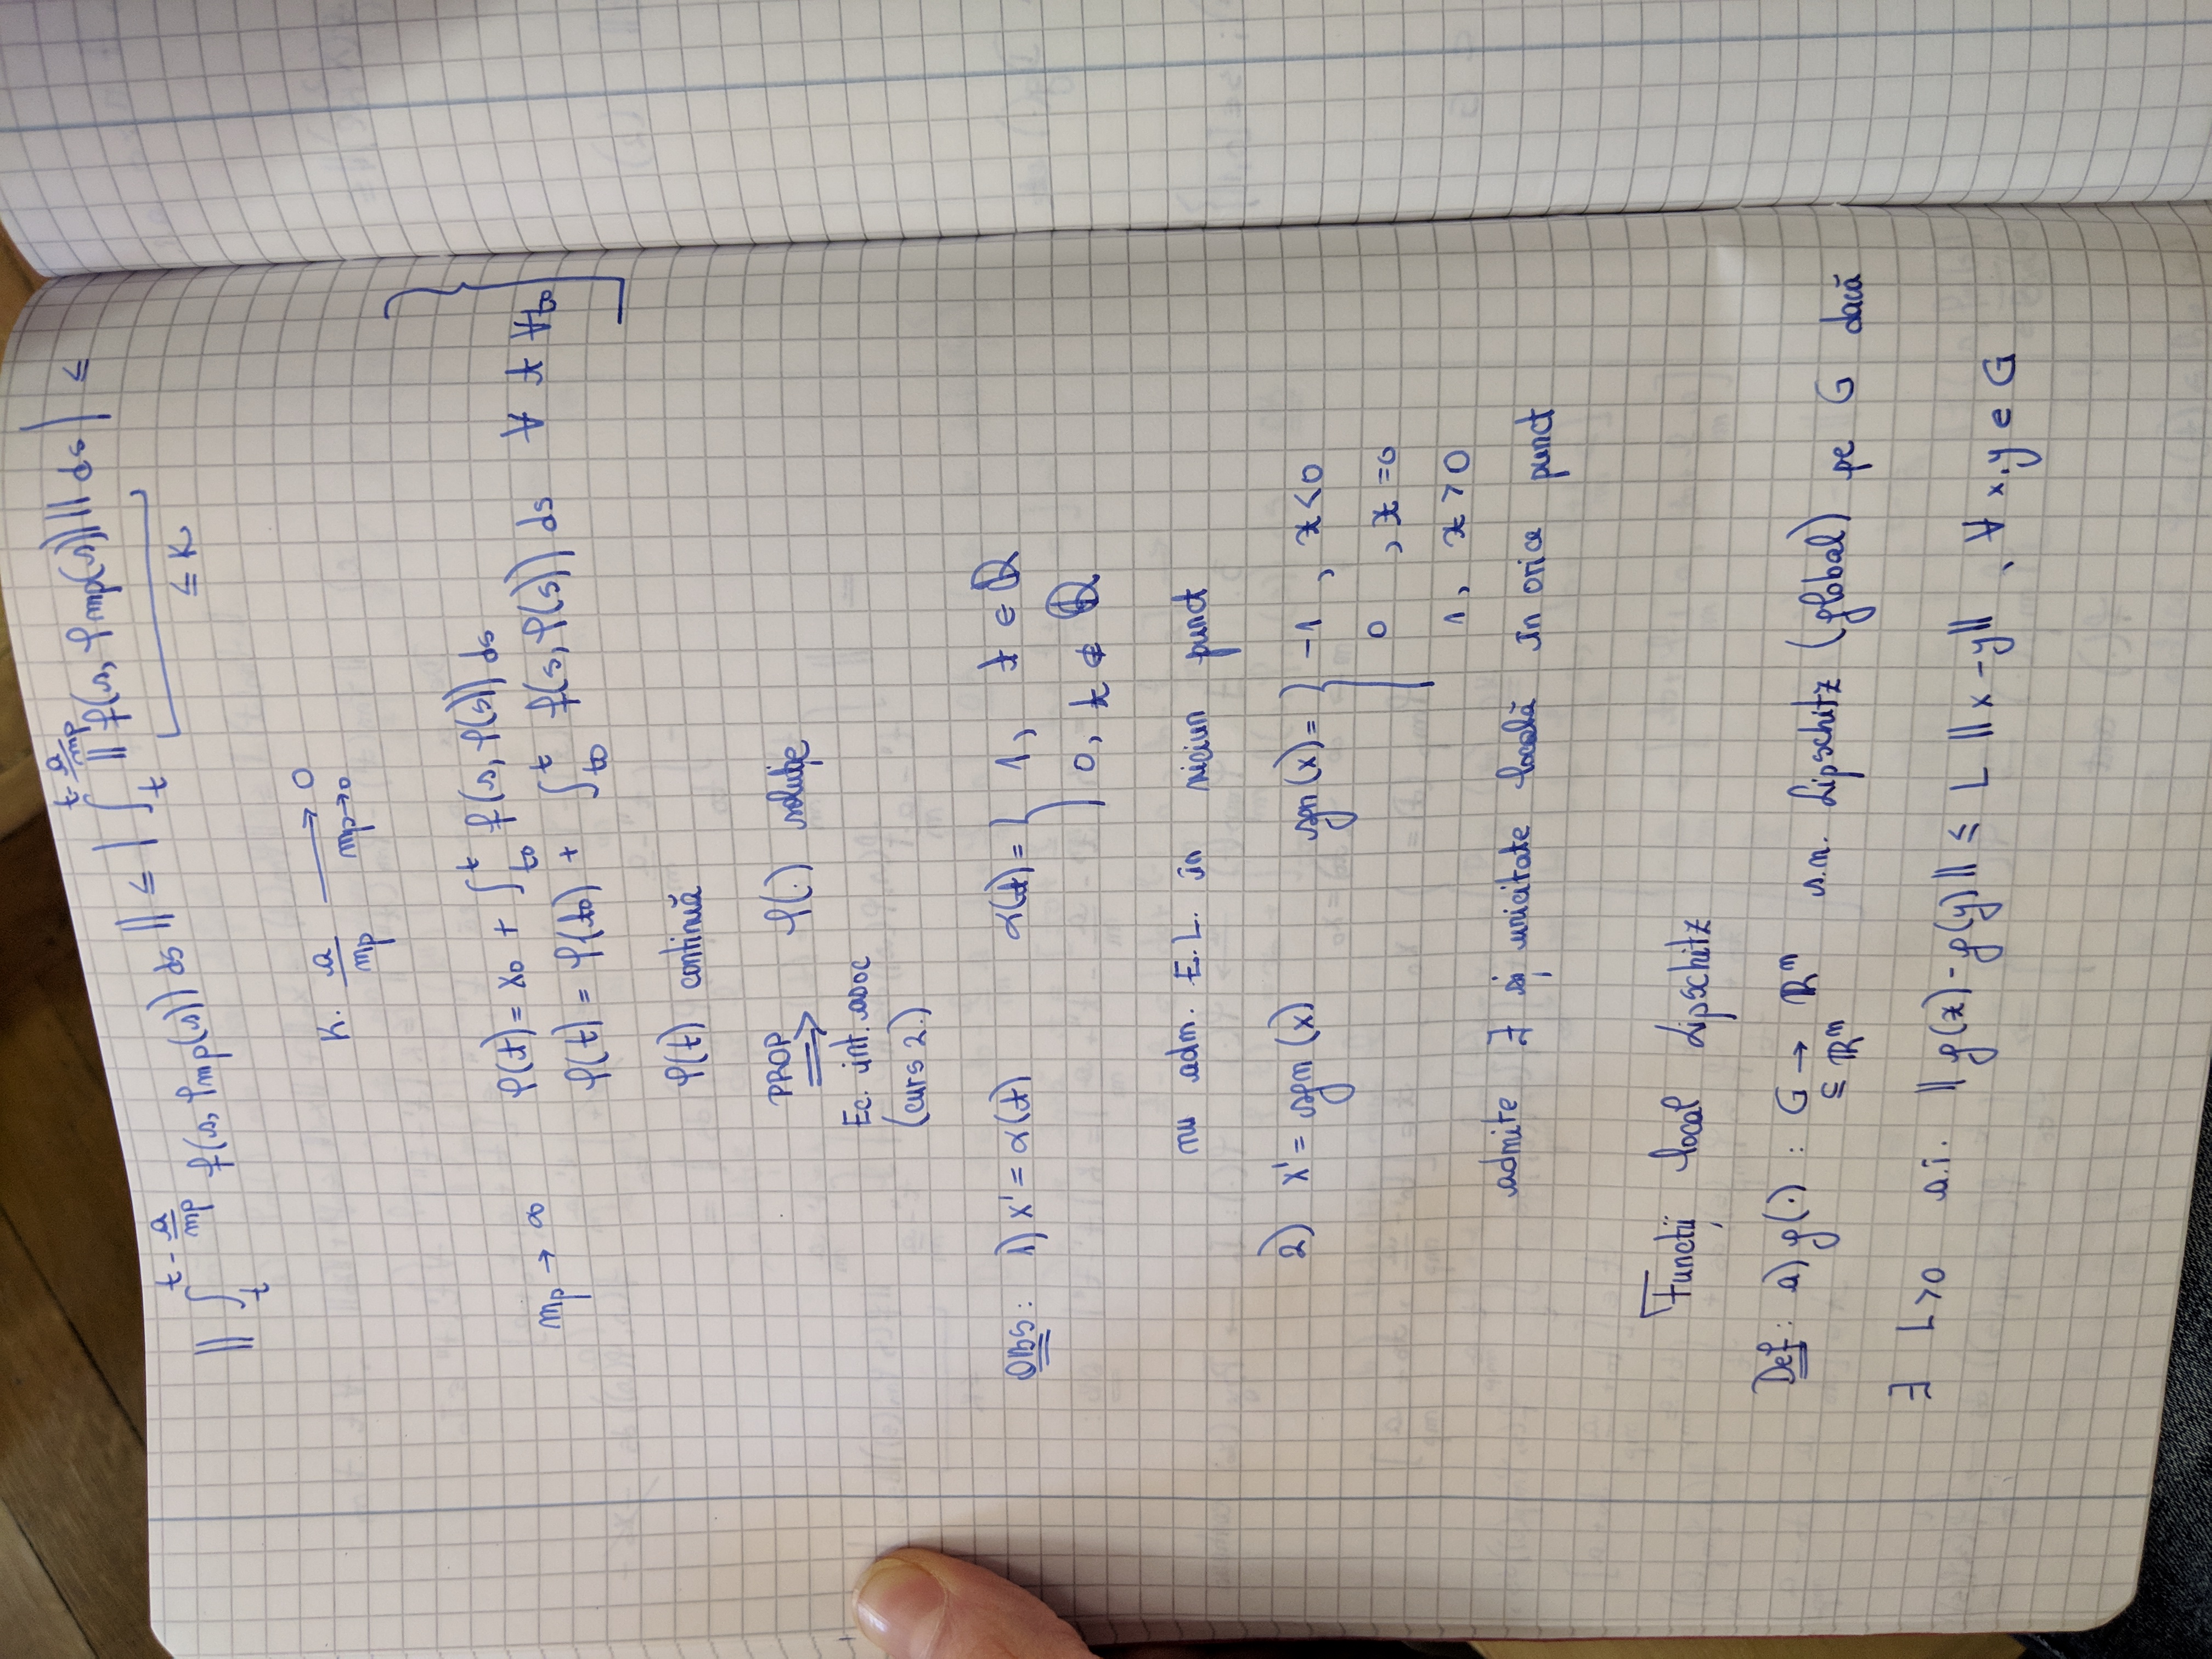 || ∫_t^{t - a/m_p} f(s, φ_{m_p}(s)) ds || ≤ | ∫_t^{t - a/m_p} || f(s, φ_{m_p}(s)) || ds | ≤
≤ K
K. a/m_p → 0
m_p → ∞
m_p → ∞ φ(t) = x_0 + ∫_{t_0}^t f(s, φ(s)) ds
φ(t) = φ(t_0) + ∫_{t_0}^t f(s, φ(s)) ds ∀ t ∀ t_0 }
φ(t) continuă
PROP
⟹ φ(.) soluție
Ec. int. asoc
(curs 2.)
OBS: 1) x' = α(t) α(t) = { 1, t ∈ ℚ
0, t ∉ ℚ
nu adm. E.L. în niciun punct
2) x' = sgn(x) sgn(x) = { -1, x < 0
0, x = 0
1, x > 0
admite ∃ și unicitate locală în orice punct
Funcții local Lipschitz
Def: a) g(.) : G → ℝ^n s.n. Lipschitz (global) pe G dacă
⊆ ℝ^m
∃ L > 0 a.î. || g(x) - g(y) || ≤ L || x - y ||, ∀ x, y ∈ G